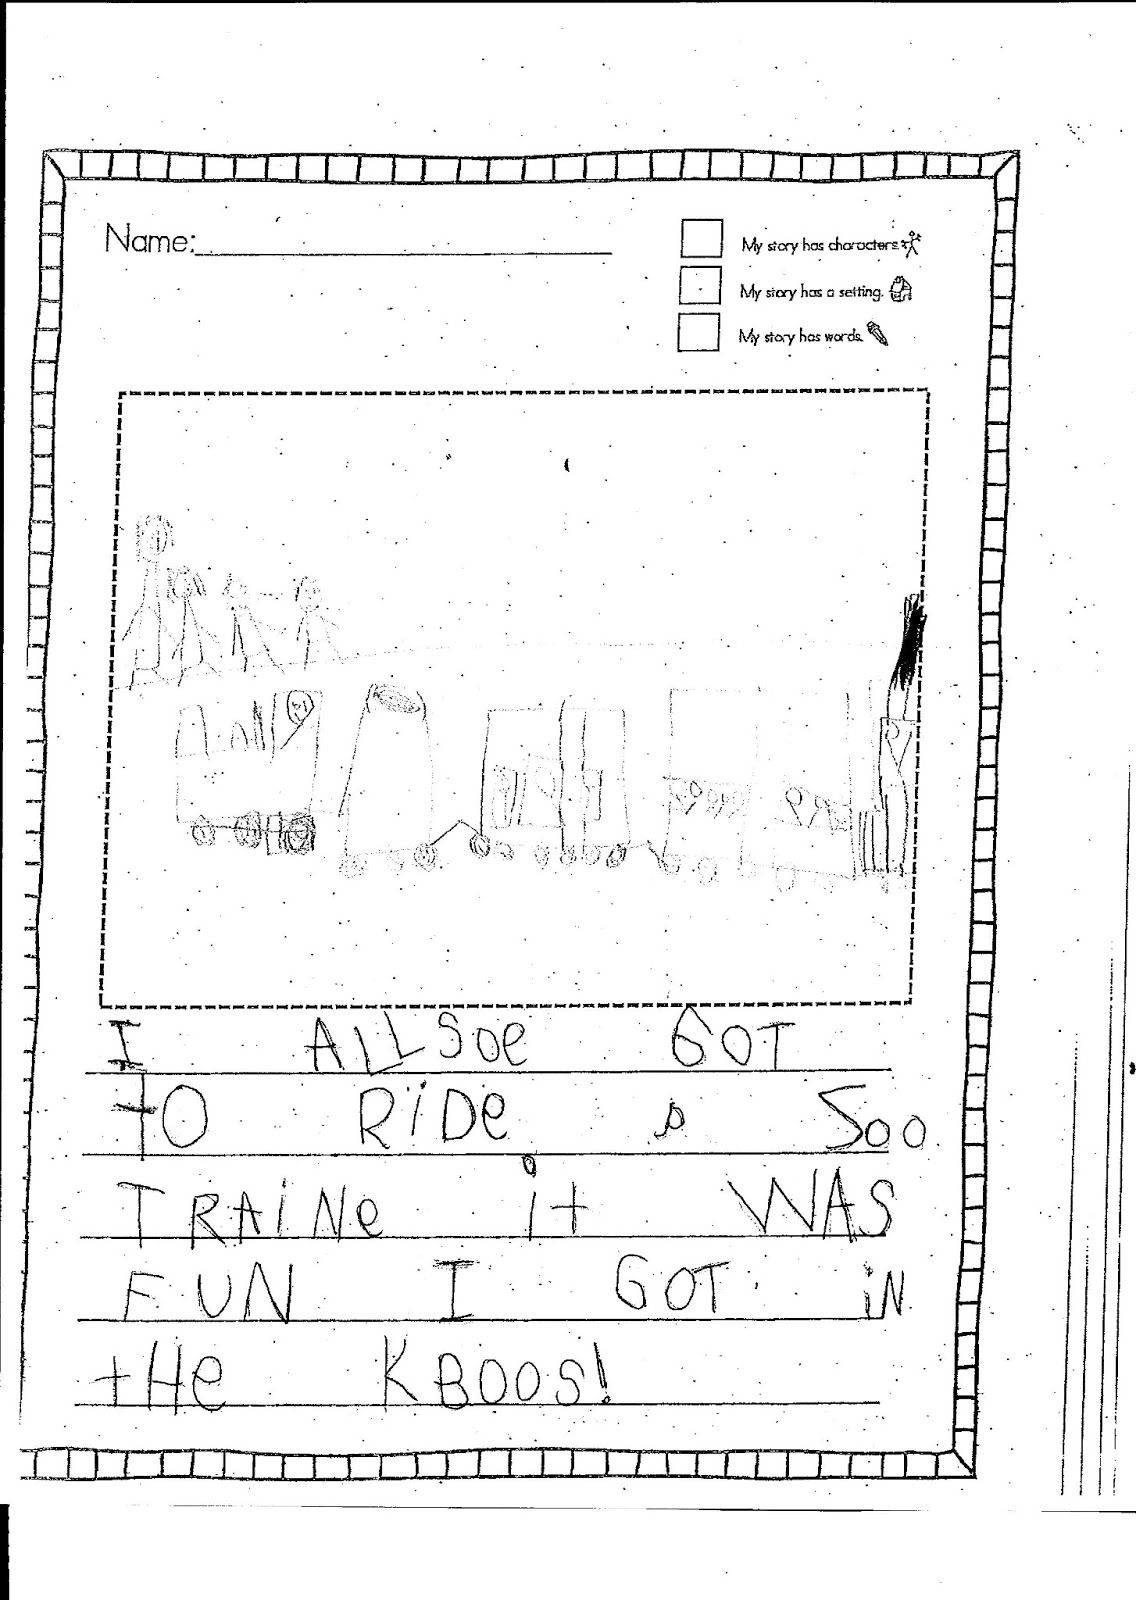 Name:
My story has characters.
My story has a setting.
My story has words.
I ALLSOe GOT
TO RiDe a Soo
TRAiNe it WAS
FUN I GOT iN
tHe KBOOS!